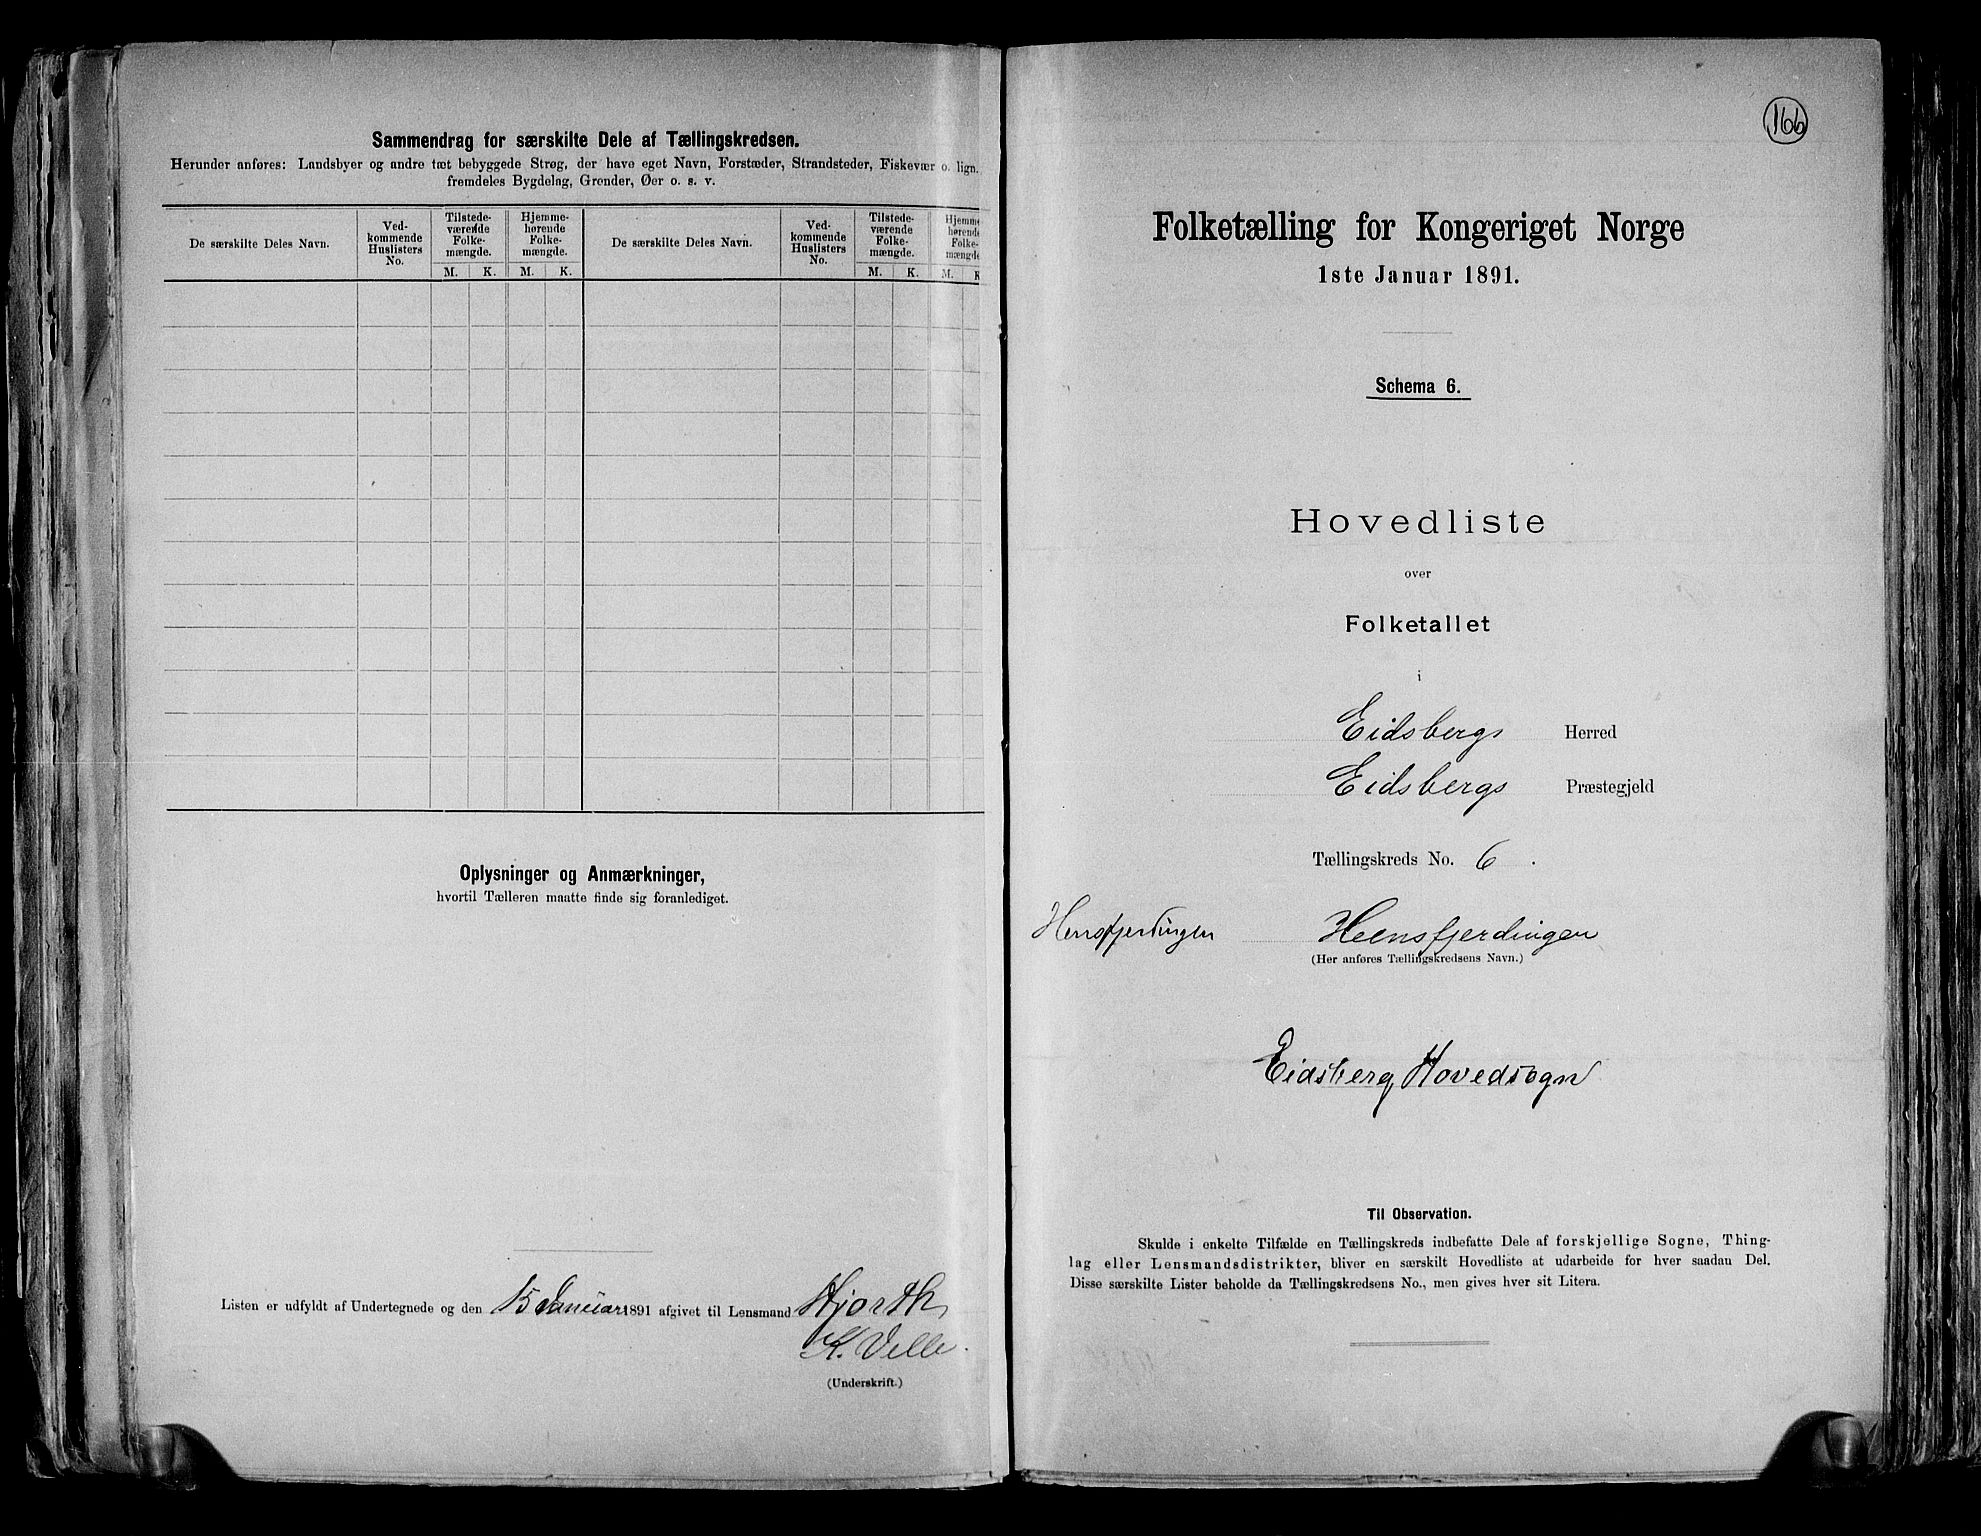 Sammendrag for særskilte Dele af Tællingskredsen.
Herunder anføres: Landsbyer og andre tæt bebyggede Strøg, der have eget Navn, Forstæder, Strandsteder, Fiskevær o. lign.
fremdeles Bygdelag, Grender, Øer o. s. v.
De særskilte Deles Navn.
Ved-
kommende
Huslisters
No.
Tilstede-
værende
Folke-
mængde.
M. K.
Hjemme-
hørende
Folke-
mængde.
M. K.
De særskilte Deles Navn.
Ved-
kommende
Huslisters
No.
Tilstede-
værende
Folke-
mængde.
M. K.
Hjemme
hørende
Folke-
mængde
M. K
Oplysninger og Anmærkninger,
hvortil Tælleren maatte finde sig foranlediget.
Listen er udfyldt af Undertegnede og den 15 Januar 1891 afgivet til Lensmand Hjorth
K. Velle.
(Underskrift.)
166
Folketælling for Kongeriget Norge
1ste Januar 1891.
Schema 6.
Hovedliste
over
Folketallet
i
Eidsbergs Herred
Eidsbergs Præstegjeld
Tællingskreds No. 6.
Hensfjerdingen Heensfjerdingen
(Her anføres Tællingskredsens Navn.)
Eidsberg Hovedsogn
Til Observation.
Skulde i enkelte Tilfælde en Tællingskreds indbefatte Dele af forskjellige Sogne, Thing-
lag eller Lensmandsdistrikter, bliver en særskilt Hovedliste at udarbeide for hver saadan Del.
Disse særskilte Lister beholde da Tællingskredsens No., men gives hver sit Litera.